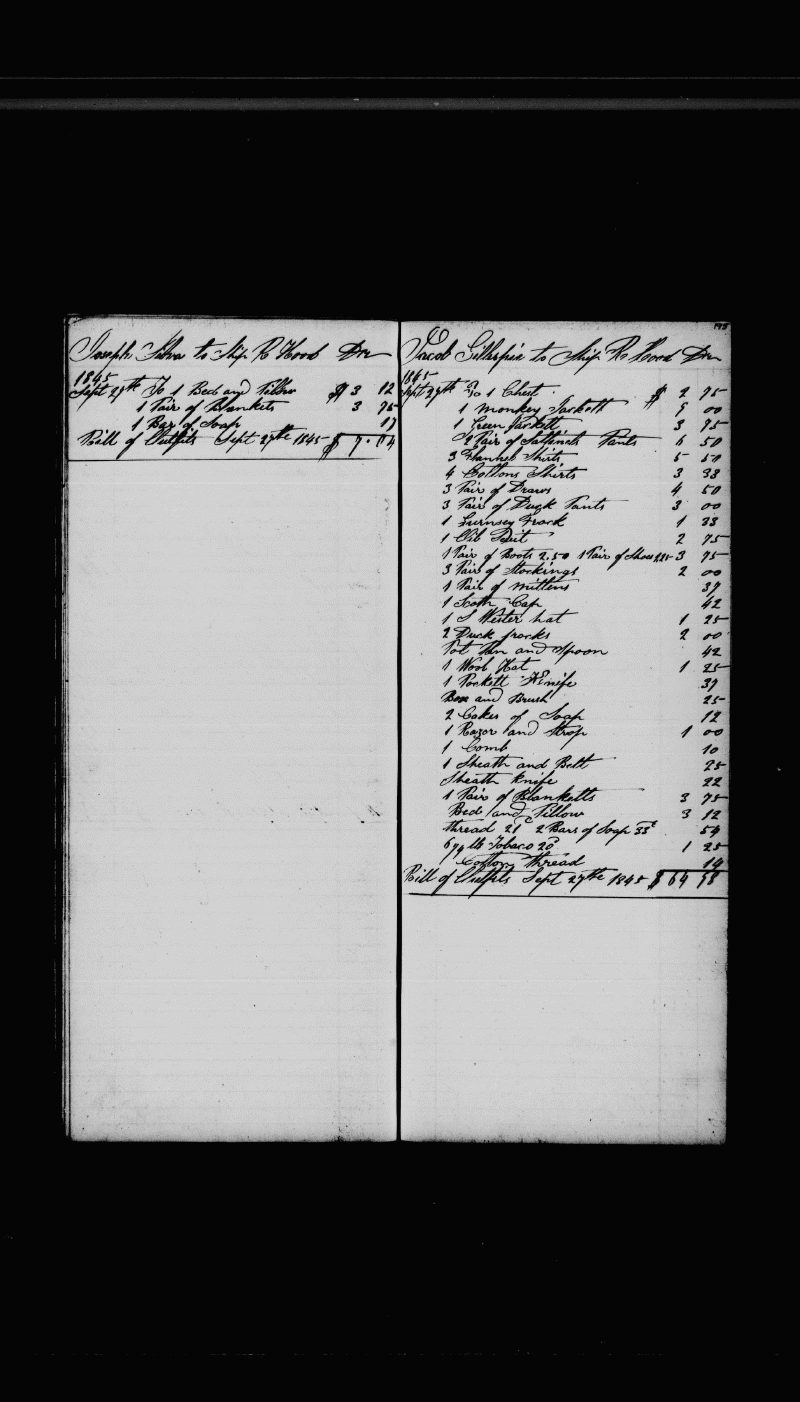 Joseph Silva to Ship R Hood Dr
1845
Sept 27th To 1 Bed and Pillow $ 3 12
1 Pair of Blankets 3 75
1 Bar of Soap 17
Bill of Outfits Sept 27th 1845 $ 7.04
Jacob Gillispie to Ship R Hood Dr
1845
Sept 27th To 1 Chest $ 2 75
1 Monkey Jackett 9 00
1 Green Jackett 3 75
2 Pair of Sattinett Pants 6 50
3 Flannel Shirts 5 50
4 Cottons Shirts 3 33
3 Pair of Draws 4 50
3 Pair of Duck Pants 3 00
1 Gurnsey Frock 1 33
1 Oil Suit 2 75
1 Pair of Boots 2.50 1 Pair of Shoes 1.25 3 75
3 Pair of Stockings 2 00
1 Pair of mittens 37
1 Scotch Cap 42
1 S Wester hat 1 25
2 Duck frocks 2 00
Pot Pan and Spoon 42
1 Wool Hat 1 25
1 Pockett Knife 37
Box and Brush 25
2 Cakes of Soap 12
1 Razor and Strop 1 00
1 Comb 10
1 Sheath and Belt 25
Sheath Knife 22
1 Pair of Blanketts 3 75
Bed and Pillow 3 12
thread 21c 2 Bars of Soap 33c 54
6 1/4 lb Tobaco 20c 1 25
Cotton thread 14
Bill of Outfits Sept 27th 1845 $ 64 98